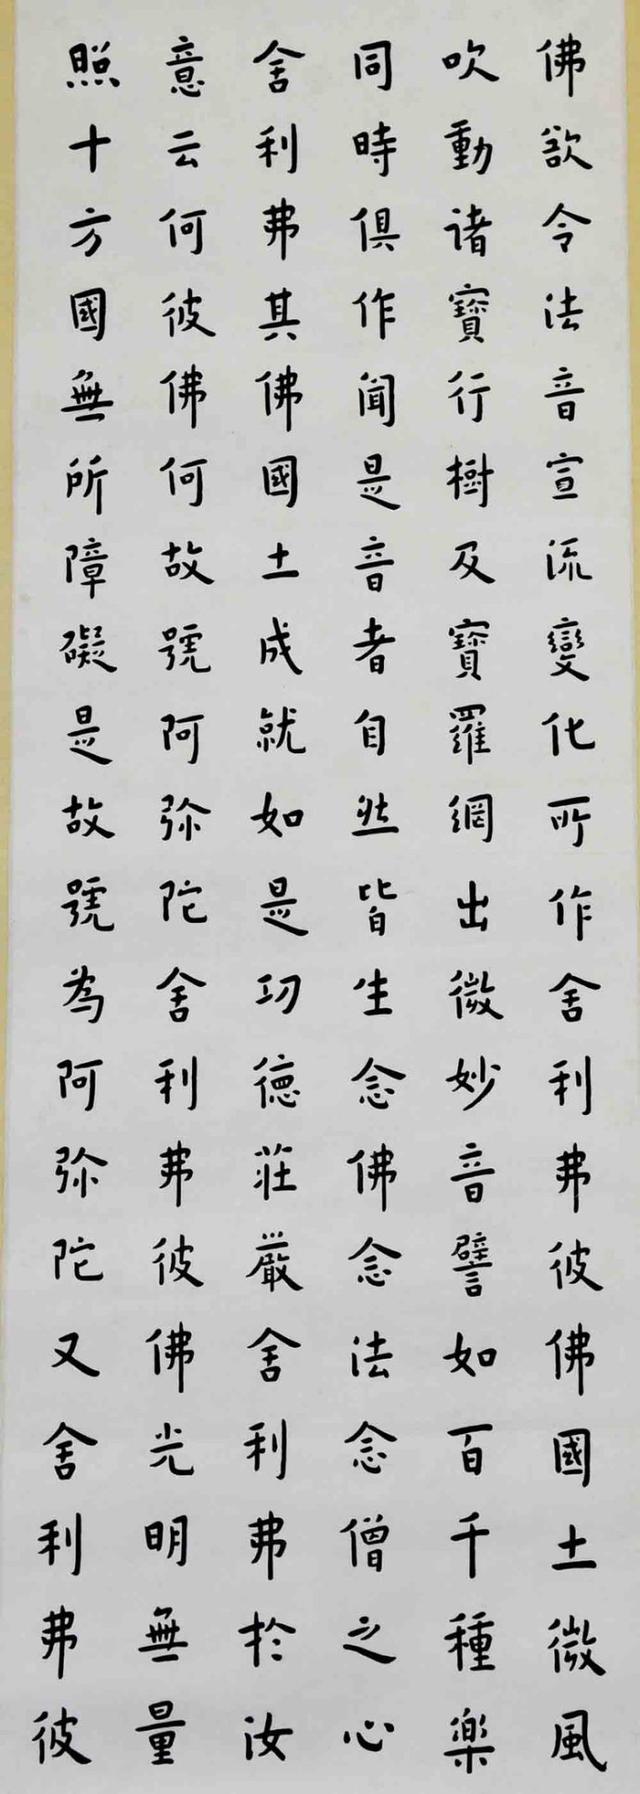 佛欲令法音宣流變化所作舍利弗彼佛國土微風
吹動諸寶行樹及寶羅網出微妙音譬如百千種樂
同時俱作聞是音者自然皆生念佛念法念僧之心
舍利弗其佛國土成就如是功德莊嚴舍利弗於汝
意云何彼佛何故號阿弥陀舍利弗彼佛光明無量
照十方國無所障礙是故號為阿弥陀又舍利弗彼